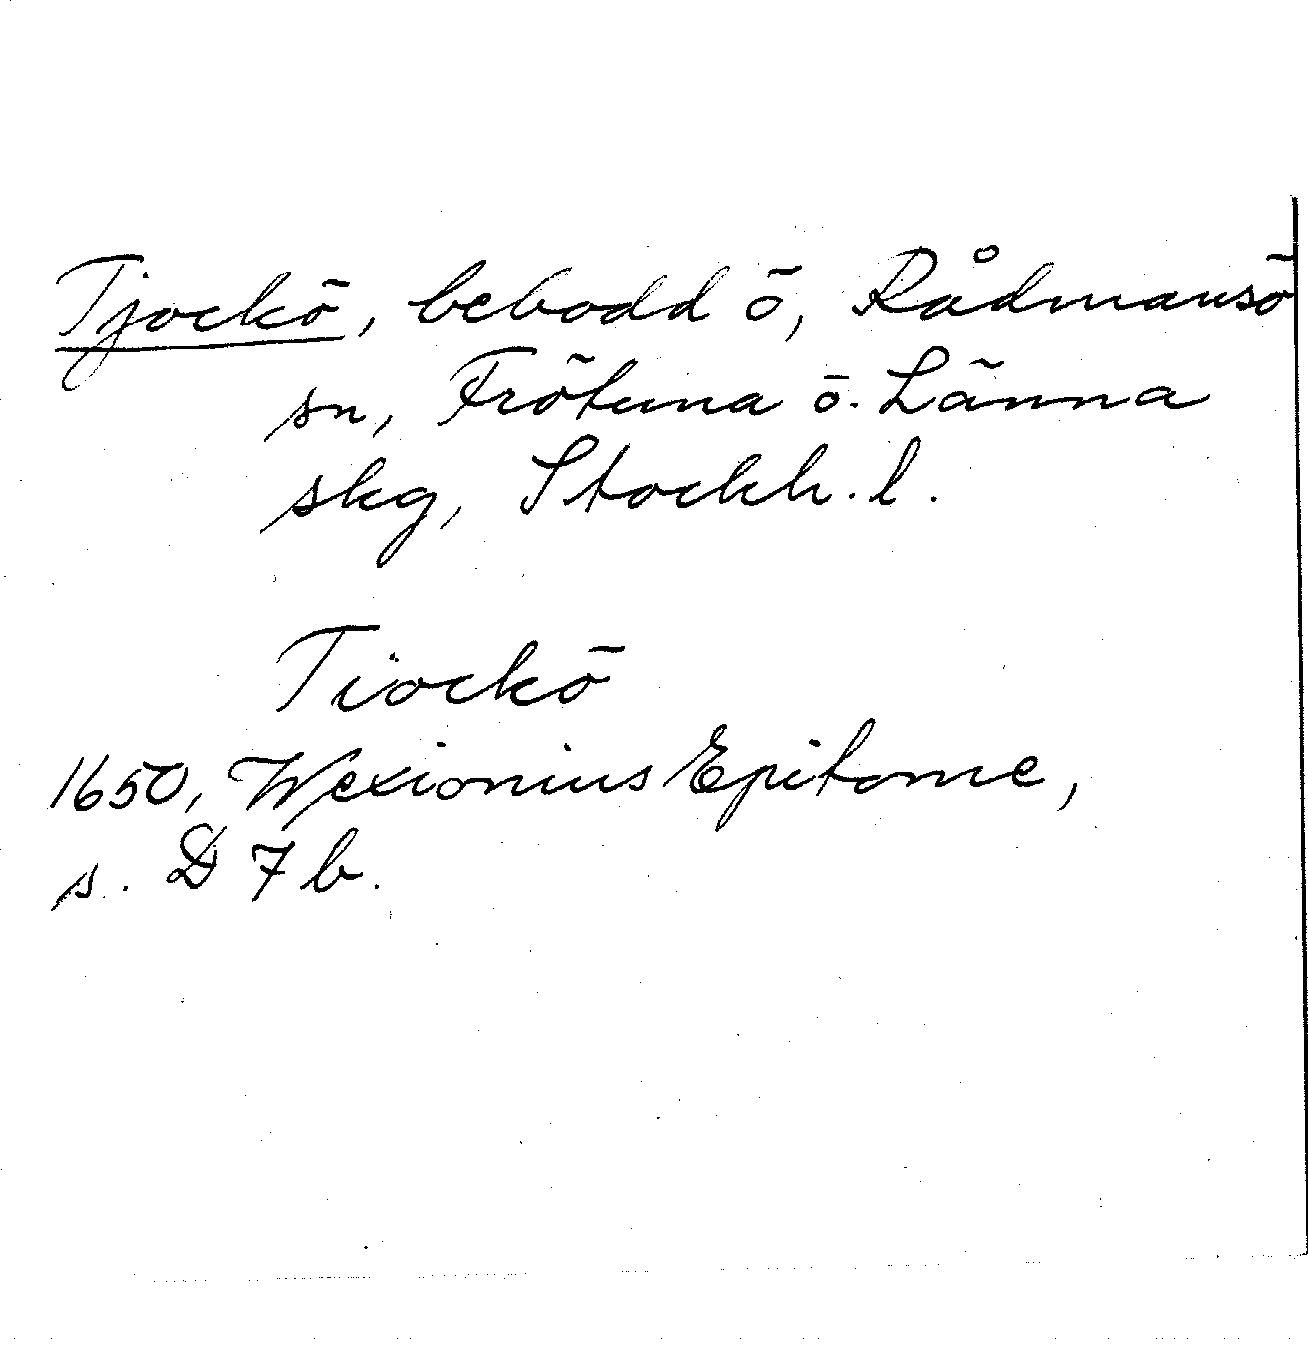 Tjockö, bebodd ö, Rådmansö
sn, Frötuna o. Länna
skg, Stockh. l.
Tiockö
1650, Wexionius Epitome,
s. D 7 b.